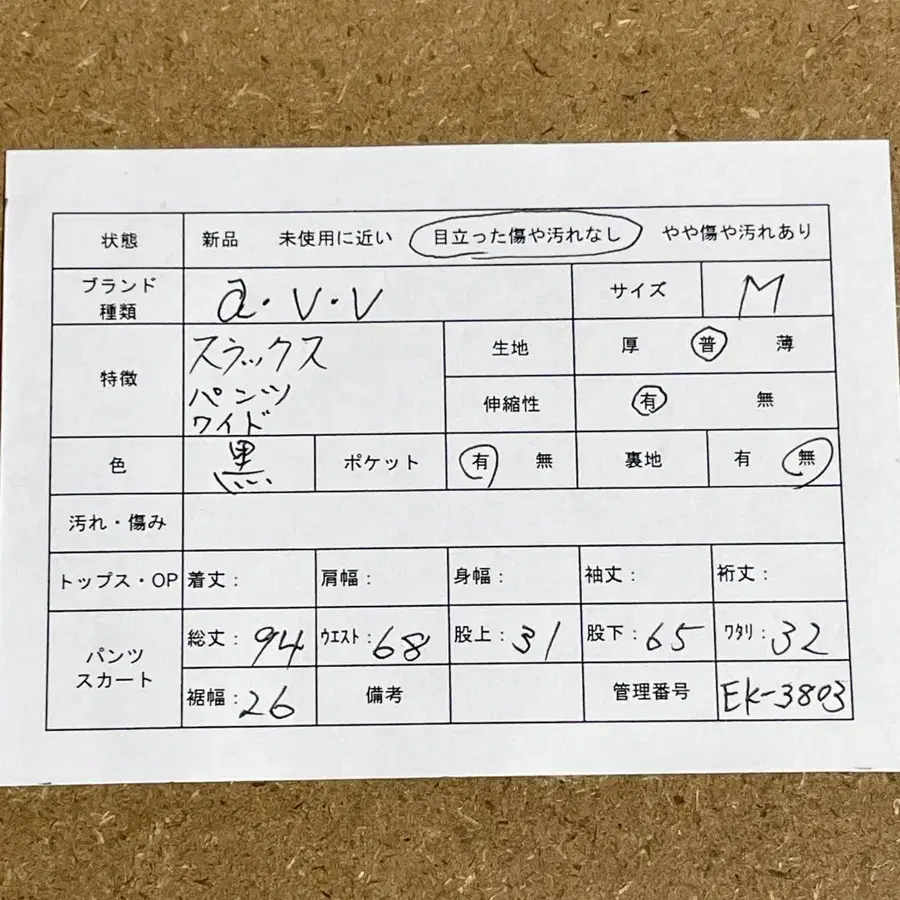 状態 新品 未使用に近い 目立った傷や汚れなし やや傷や汚れあり
ブランド
種類 a.v.v サイズ M
特徴 スラックス
パンツ
ワイド
生地 厚 普 薄
伸縮性 有 無
色 黒 ポケット 有 無 裏地 有 無
汚れ・傷み
トップス・OP 着丈: 肩幅: 身幅: 袖丈: 裄丈:
パンツ
スカート
総丈:94 ウエスト:68 股上:31 股下:65 ワタリ:32
裾幅:26 備考 管理番号 EK-3803